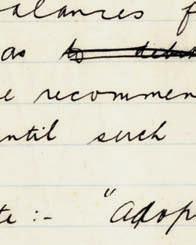 alances f
as to deb
e recommen
until such
te :- "Adop